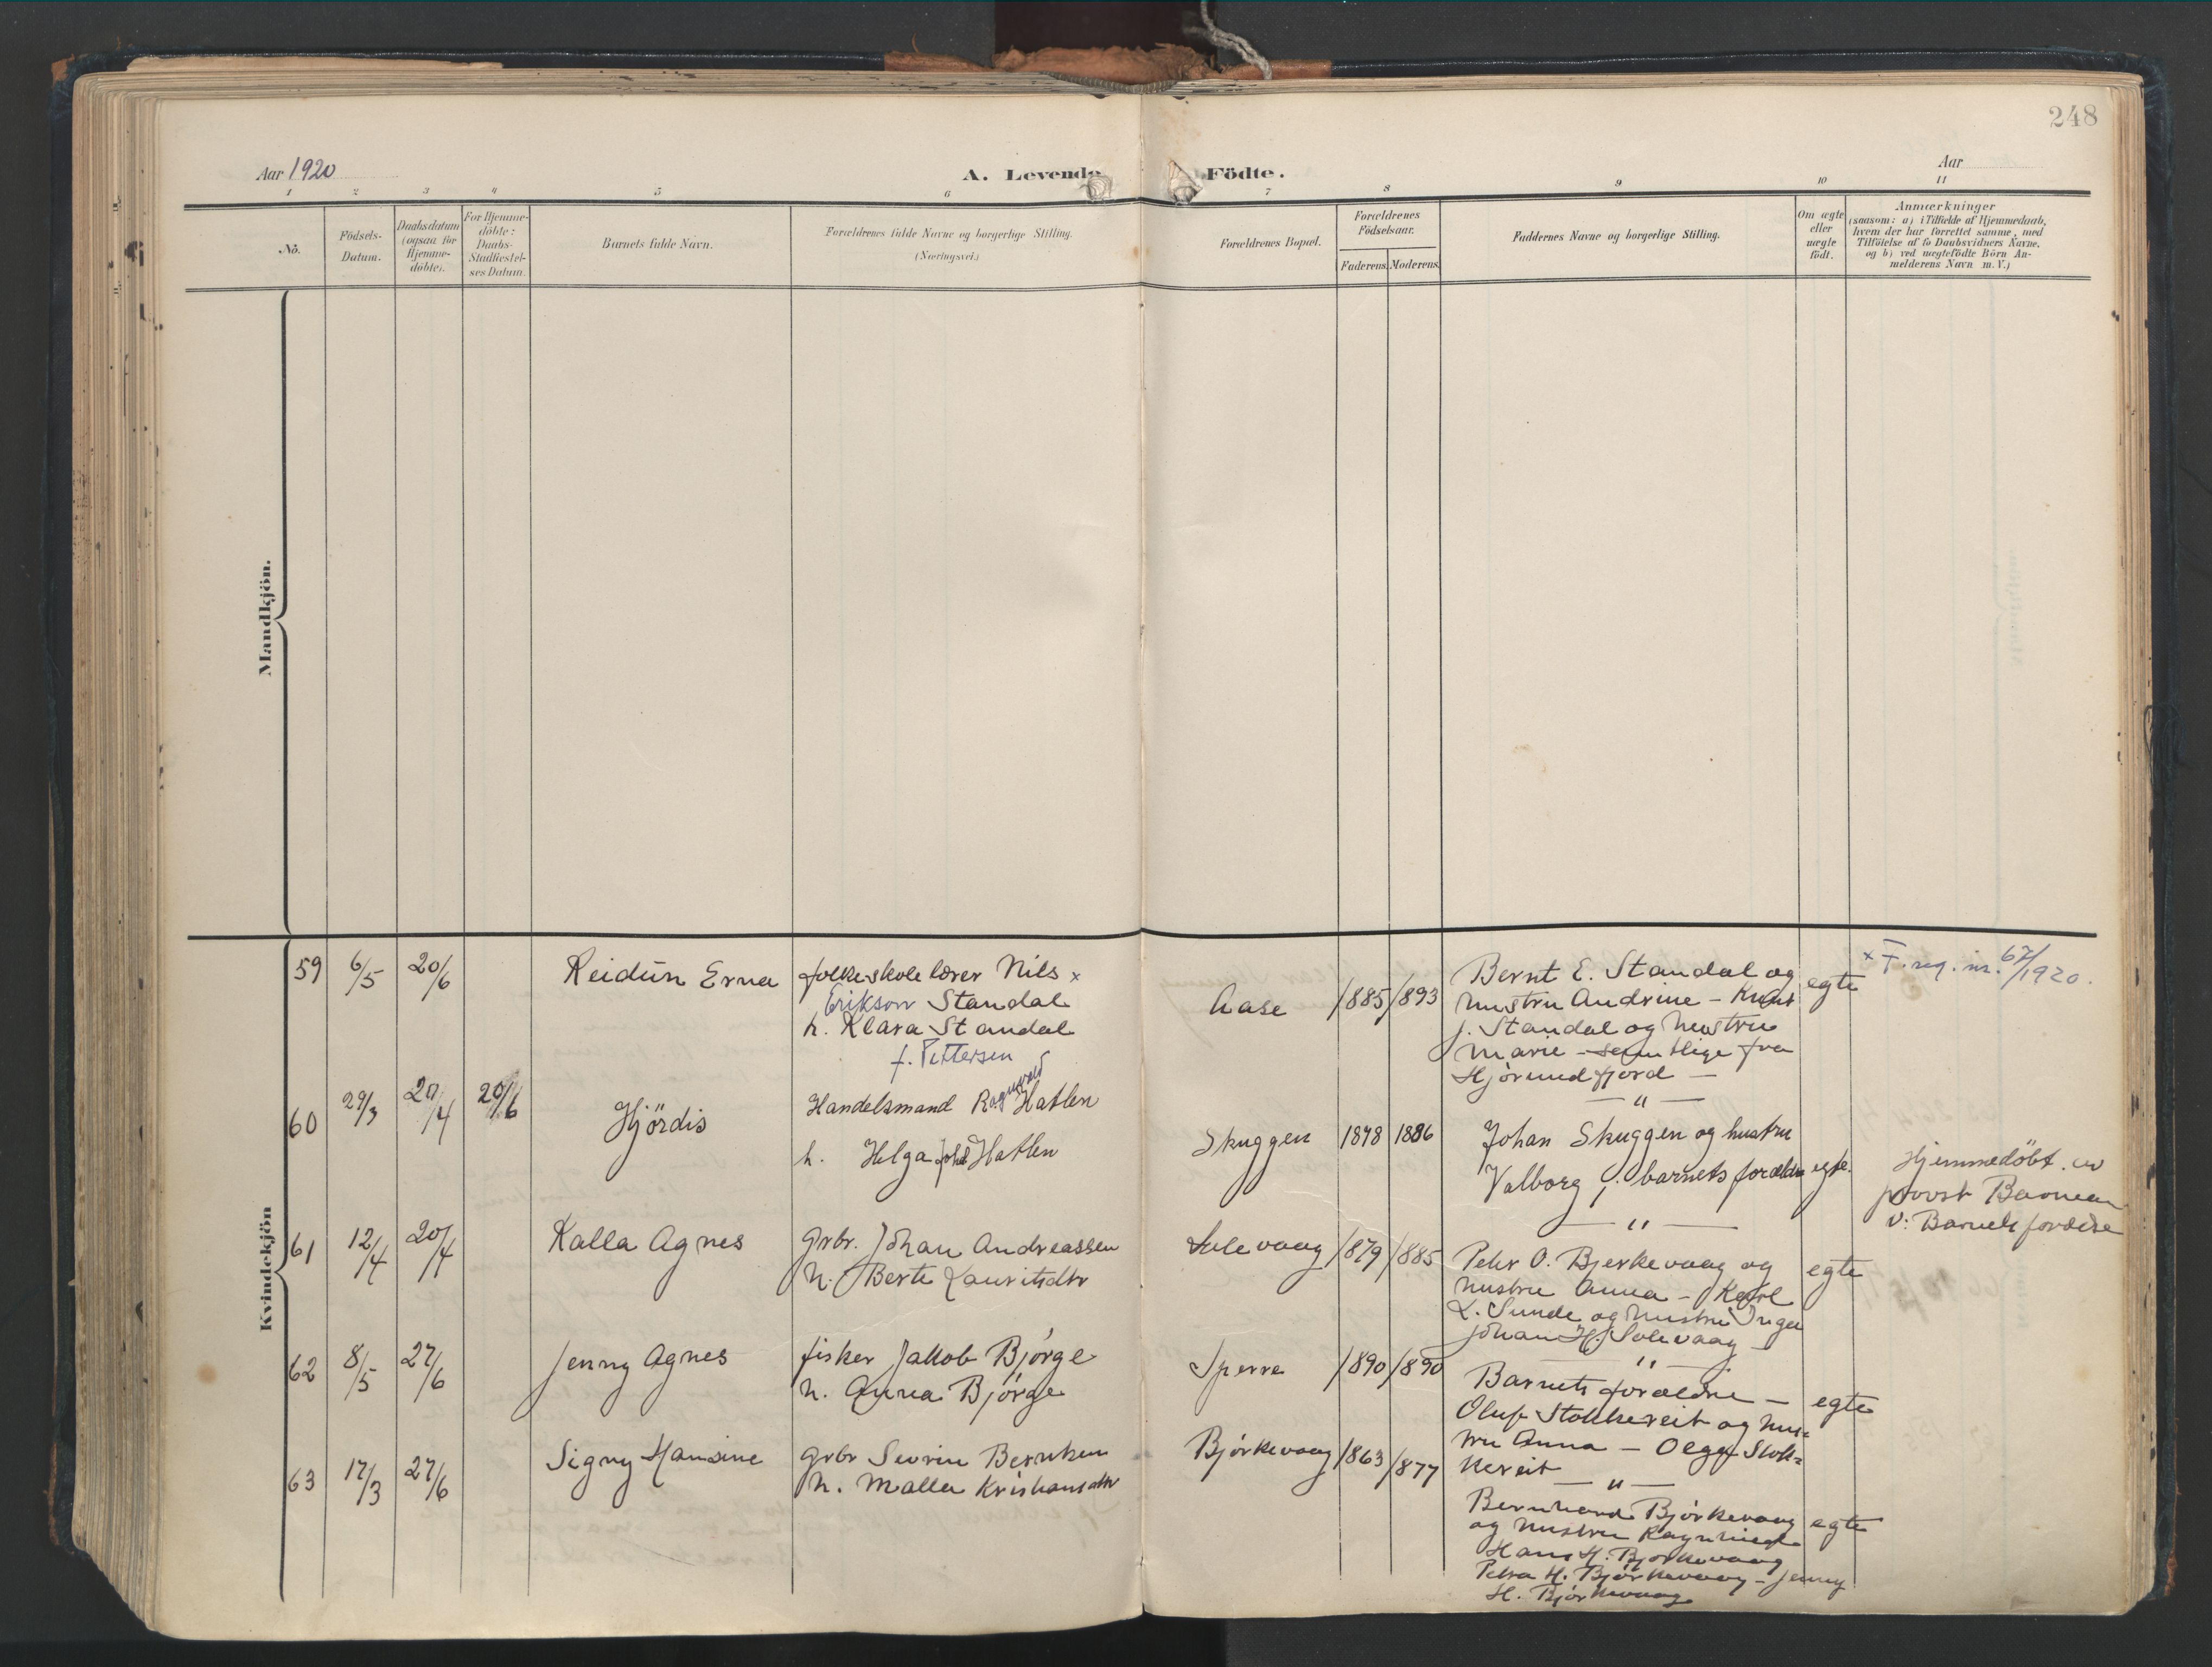 248
Aar 1920
A. Levende Födte.
Aar
1 2 3 4 5 6 7 8 9 10 11
No.
Födsels-
Datum.
Daabsdatum
(ogsaa for
Hjemme-
döbte).
For Hjemme-
döbte:
Daabs-
Stadfæstel-
ses Datum.
Barnets fulde Navn.
Forældrenes fulde Navne og borgerlige Stilling.
(Næringsvei.)
Forældrenes Bopæl.
Forældrenes
Födselsaar.
Faderens. Moderens.
Faddernes Navne og borgerlige Stilling.
Om ægte
eller
uægte
födt.
Anmærkninger
(saasom: a) i Tilfælde af Hjemmedaab,
hvem der har forrettet samme, med
Tilföielse af to Daabsvidners Navne,
og b) ved uægtefödte Börn An-
melderens Navn m. V.)
Mandkjön.
Kvindekjön
59 6/5 20/6 Reidun Erna
folkeskolelærer Nils x
Erikson Standal
h. Klara Standal
f. Pettersen
Aase 1885 1893
Bernt E. Standal og
hustru Andrine - Knut
J. Standal og hustru
Marie - samtlige fra
Hjørundfjord -
— " —
egte
x F. reg. nr. 67/1920.
60 29/3 20/4 20/6 Hjördis
Handelsmand Ragnvald Hatlen
h. Helga Hatlen
Skuggen 1878 1886
Johan Skuggen og hustru
Valborg, barnets forældre
— " —
egte.
Hjemmedöbt av
provst Barman
v. Barnets forældre
61 12/4 20/4 Kalla Agnes
Grbr. Johan Andreassen
h. Berte Lauritsdtr
Sulevaag 1879 1885
Peter O. Bjerkevaag og
hustru Anna - Karl
L. Sunde og hustru Inga
Johan H. Solevaag
— " —
egte
62 8/5 27/6 Jenny Agnes
fisker Jakob Bjørge
h. Anna Bjørge
Sperre 1890 1890
Barnets forældre —
Oluf Stokkereit og hus-
tru Anna — Olga Stok-
kereit
— " —
egte
63 17/3 27/6 Signy Hansine
grbr Sevrin Berntsen
h. Malla Kristiansdtr
Bjørkevaag 1863 1877
Bernhard Bjørkevaag
og hustru Ragnhild
Hans H. Bjørkevaag
Petra H. Bjørkevaag - Jenny
H. Bjørkevaag
egte